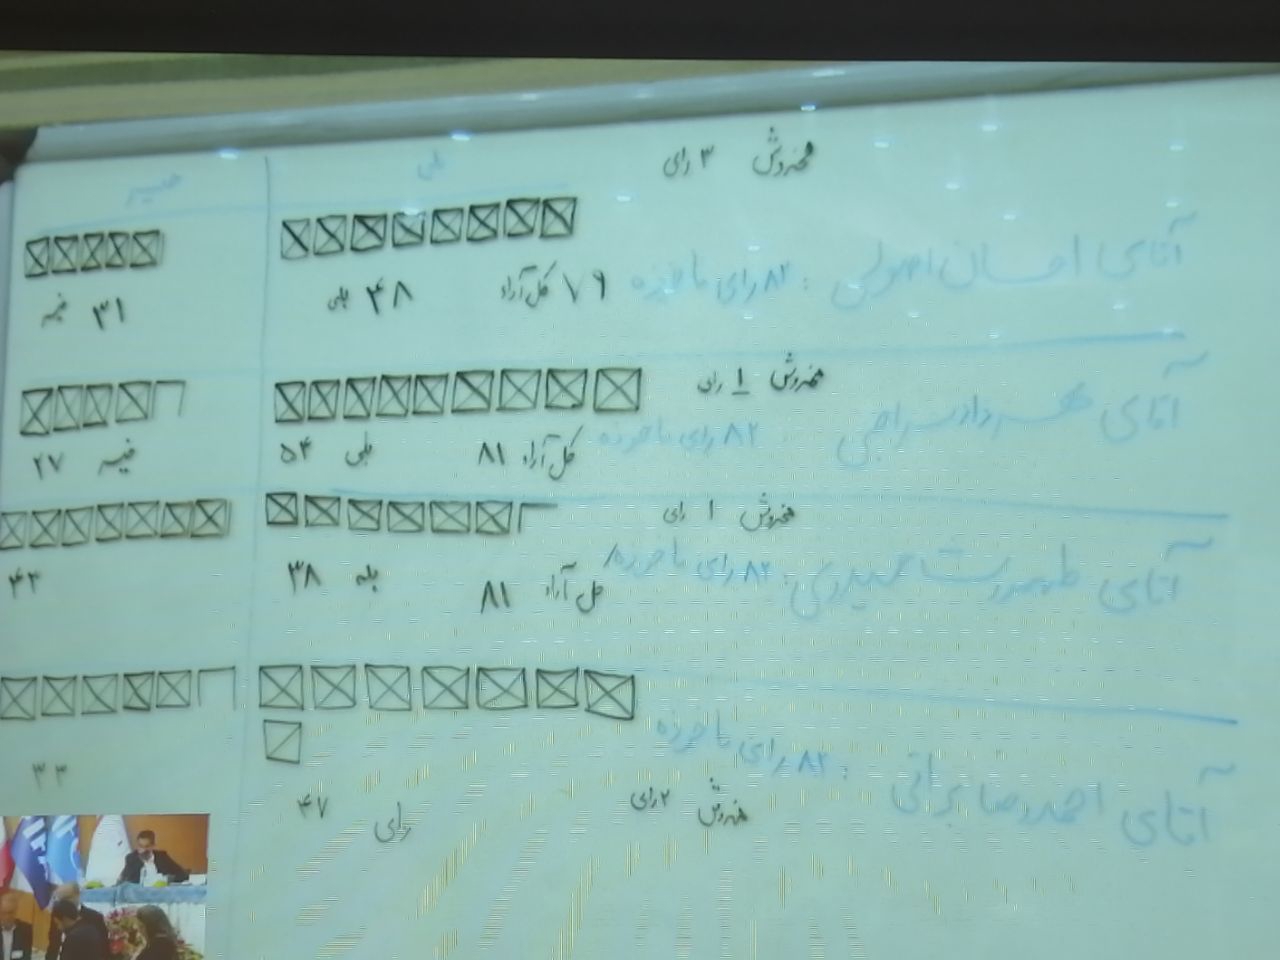 بلی
مخدوش ۳ رای
آقای احسان اصولی : ۸۲ رای ماخوذه
۷۹ کل آراء ۴۸ بلی ۳۱ خیر
مخدوش ۱ رای
آقای مهرداد سراجی ۸۲ رای ماخوذه
کل آراء ۸۱ بلی ۵۴ خیر ۲۷
مخدوش ۱ رای
آقای طهمورث حیدری : ۸۲ رای ماخوذه
کل آراء ۸۱ بله ۳۸ ۴۳
آقای احمدرضا براتی : ۸۲ رای ماخوذه
مخدوش ۲ رای
رای ۴۷ ۳۳